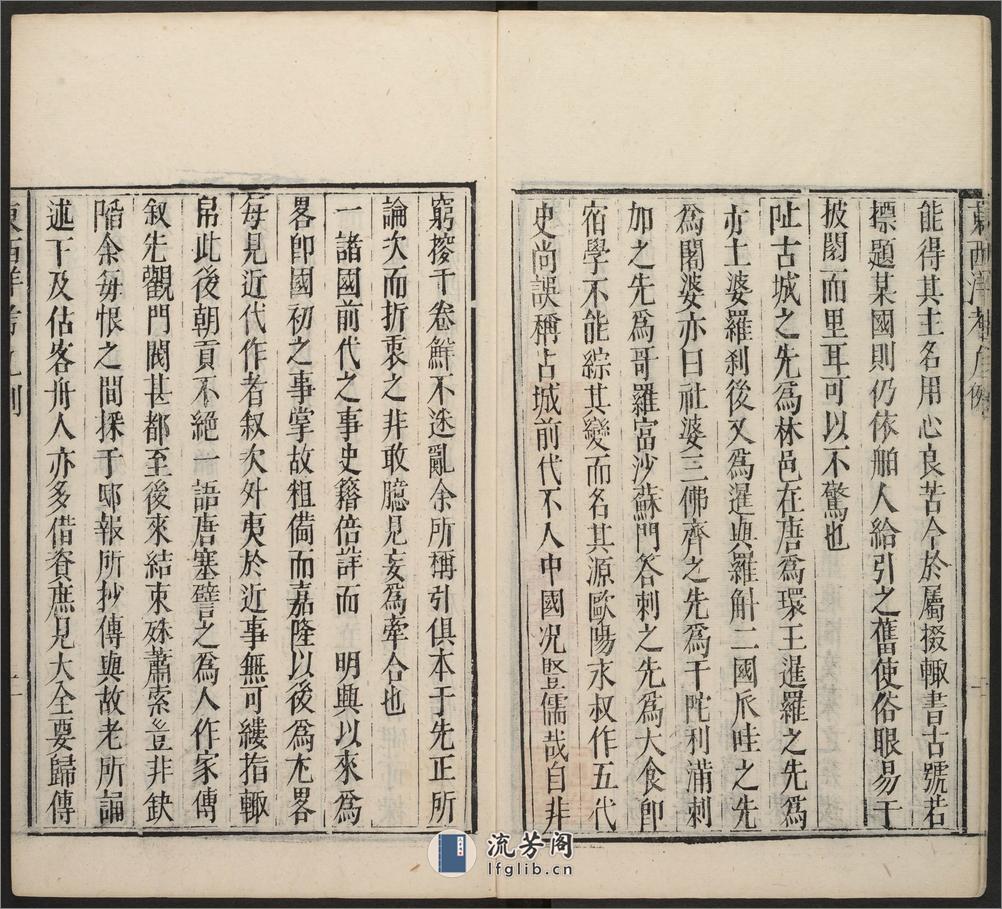 東西洋考凡例
能得其主名用心良苦今於屬掇輙書古號若
標題某國則仍依舶人給引之舊使俗眼易于
披閱而里耳可以不驚也
阯古城之先爲林邑在唐爲環王暹羅之先爲
赤土婆羅刹後又爲暹與羅斛二國爪哇之先
爲闍婆亦曰社婆三佛齊之先爲干陀利滿剌
加之先爲哥羅富沙蘇門答刺之先爲大食卽
宿學不能綜其變而名其源歐陽永叔作五代
史尚誤稱占城前代不入中國况豎儒哉自非
窮搜千卷鮮不迷亂余所稱引俱本于先正所
論次而折衷之非敢臆見妄爲牽合也
一諸國前代之事史籍倍詳而 明興以來爲
畧卽國初之事掌故粗備而嘉隆以後爲尢畧
每見近代作者叙次外夷於近事無可縷指輙
帛此後朝貢不絶一語唐塞譬之爲人作家傳
叙先觀門閥甚都至後來結束殊蕭索豈非缺
陷余每恨之間採于邸報所抄傳與故老所誦
述下及估客舟人亦多借資庶見大全要歸傳
東西洋考 凡例 二
流芳阁
lfglib.cn